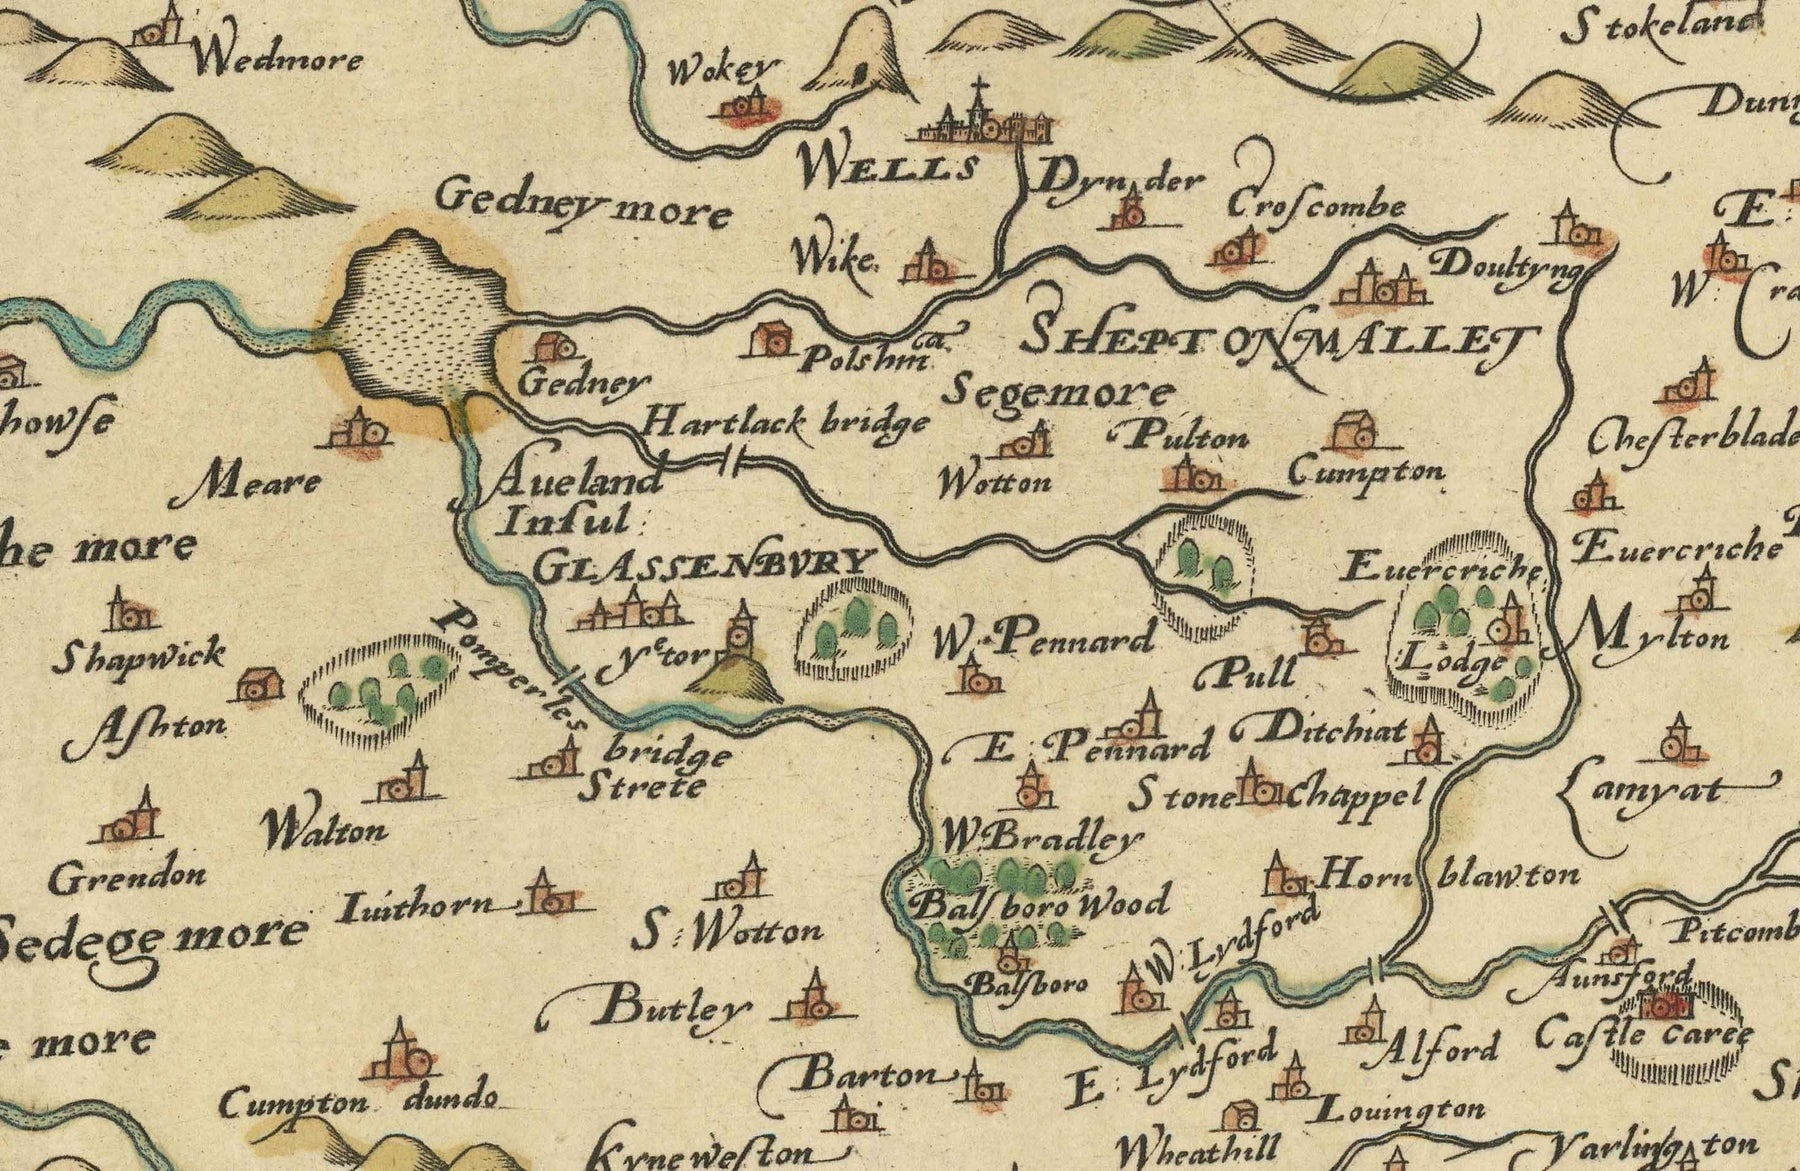 Stokeland
Wedmore
Wokey
Dun
WELLS
Dyn der
Gedney more
Croſcombe
E:
Wike.
Doultyng
W: Cra
SHEPTON MALLET
Polshm̄a
Gedney
Segemore
howſe
Hartlack bridge
Pulton
Cheſterblade
Meare
Wotton
Cumpton
Aueland
Inſul:
he more
GLASSENBVRY
Euercriche
Euercriche
Shapwick
Pomperles
yᵉ tor
W. Pennard
Mylton
Lodge
Pull
Aſhton
E. Pennard
Ditchiat
bridge
Strete
Stone Chappel
Lamyat
Walton
W. Bradley
Grendon
Iuithorn
Horn blawton
Balſboro Wood
Sedege more
S: Wotton
W. Lydford
Pitcomb
Balſboro
Aunsford
Butley
e more
Caſtle caree
Alford
E: Lydford
Barton
Cumpton dundo
Louington
Kyneweſton
Wheathill
Yarlington